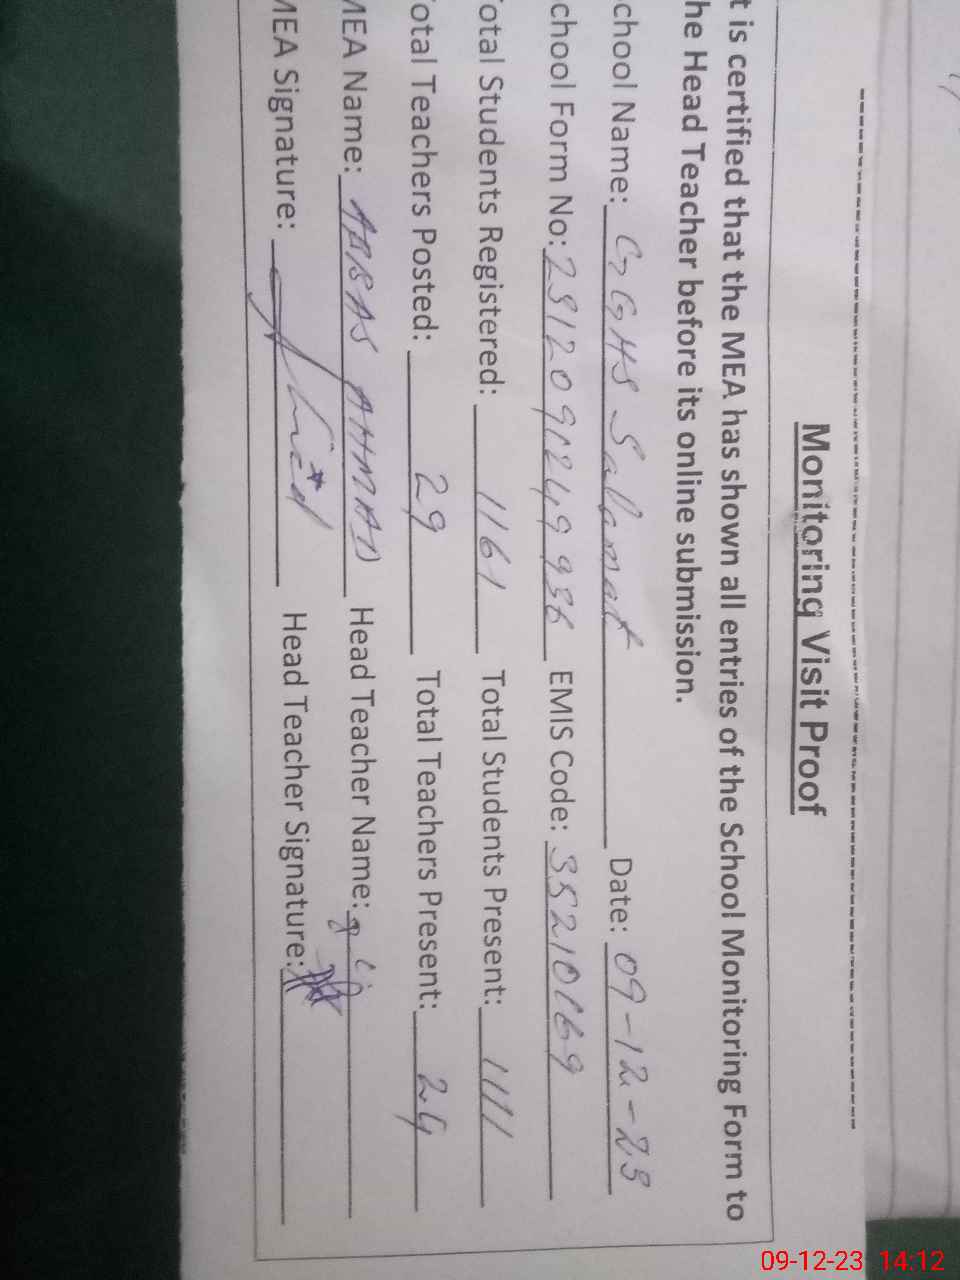 Monitoring Visit Proof
t is certified that the MEA has shown all entries of the School Monitoring Form to
he Head Teacher before its online submission.
chool Name: GGHS Salamat Date: 09-12-23
chool Form No: 2312091249936 EMIS Code: 35210169
otal Students Registered: 1161 Total Students Present: 1111
otal Teachers Posted: 29 Total Teachers Present: 24
MEA Name: ABBAS AHMAD Head Teacher Name:
MEA Signature: Head Teacher Signature:
09-12-23 14:12